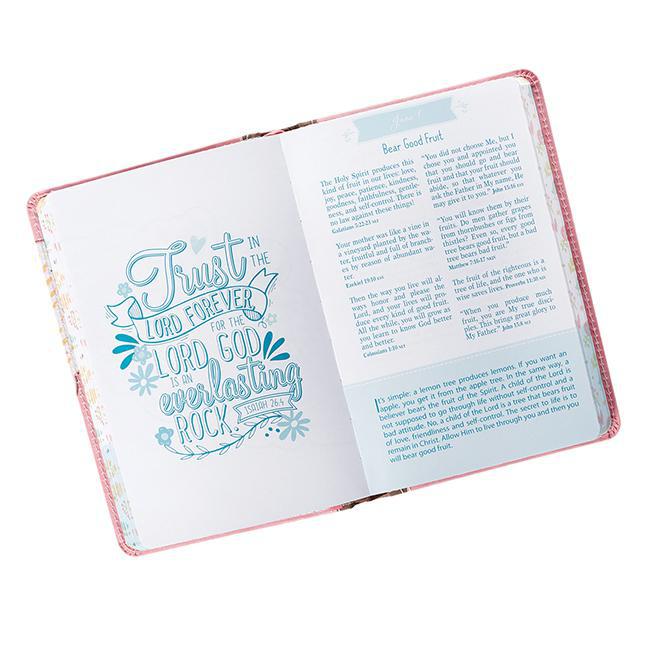 Trust IN
THE
LORD FOREVER
FOR THE
LORD GOD
IS AN
everlasting
ROCK.
ISAIAH 26:4
June 1
Bear Good Fruit
The Holy Spirit produces this
kind of fruit in our lives: love,
joy, peace, patience, kindness,
goodness, faithfulness, gentle-
ness, and self-control. There is
no law against these things!
Galatians 5:22-23 NLT
Your mother was like a vine in
a vineyard planted by the wa-
ter, fruitful and full of branch-
es by reason of abundant wa-
ter.
Ezekiel 19:10
Then the way you live will al-
ways honor and please the
Lord, and your lives will pro-
duce every kind of good fruit.
All the while, you will grow as
you learn to know God better
and better.
Colossians 1:10 NLT
“You did not choose Me, but I
chose you and appointed you
that you should go and bear
fruit and that your fruit should
abide, so that whatever you
ask the Father in My name, He
may give it to you.” John 15:16 ESV
“You will know them by their
fruits. Do men gather grapes
from thornbushes or figs from
thistles? Even so, every good
tree bears good fruit, but a bad
tree bears bad fruit.”
Matthew 7:16-17 NKJV
The fruit of the righteous is a
tree of life, and the one who is
wise saves lives. Proverbs 11:30
“When you produce much
fruit, you are My true disci-
ples. This brings great glory to
My Father.” John 15:8 NLT
It's simple: a lemon tree produces lemons. If you want an
apple, you get it from the apple tree. In the same way, a
believer bears the fruit of the Spirit. A child of the Lord is
not supposed to go through life without self-control and a
bad attitude. No, a child of the Lord is a tree that bears fruit
of love, friendliness and self-control. The secret to life is to
remain in Christ. Allow Him to live through you and then you
will bear good fruit.